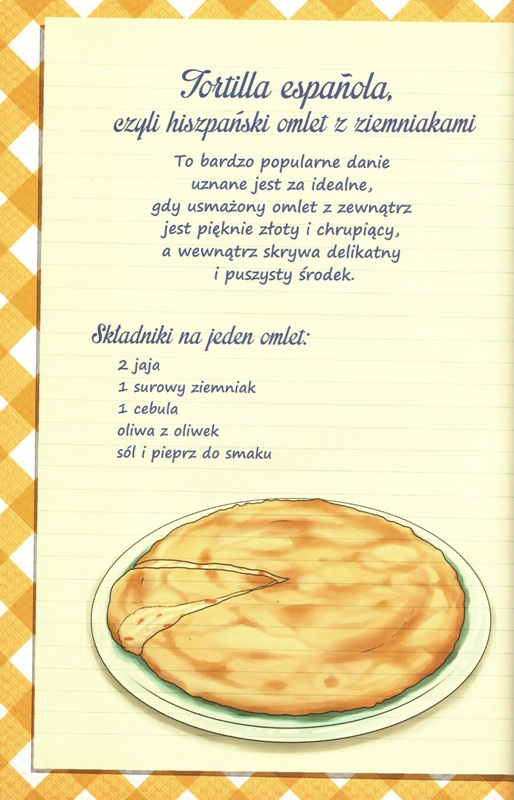 Tortilla española,
czyli hiszpański omlet z ziemniakami
To bardzo popularne danie
uznane jest za idealne,
gdy usmażony omlet z zewnątrz
jest pięknie złoty i chrupiący,
a wewnątrz skrywa delikatny
i puszysty środek.
Składniki na jeden omlet:
2 jaja
1 surowy ziemniak
1 cebula
oliwa z oliwek
sól i pieprz do smaku